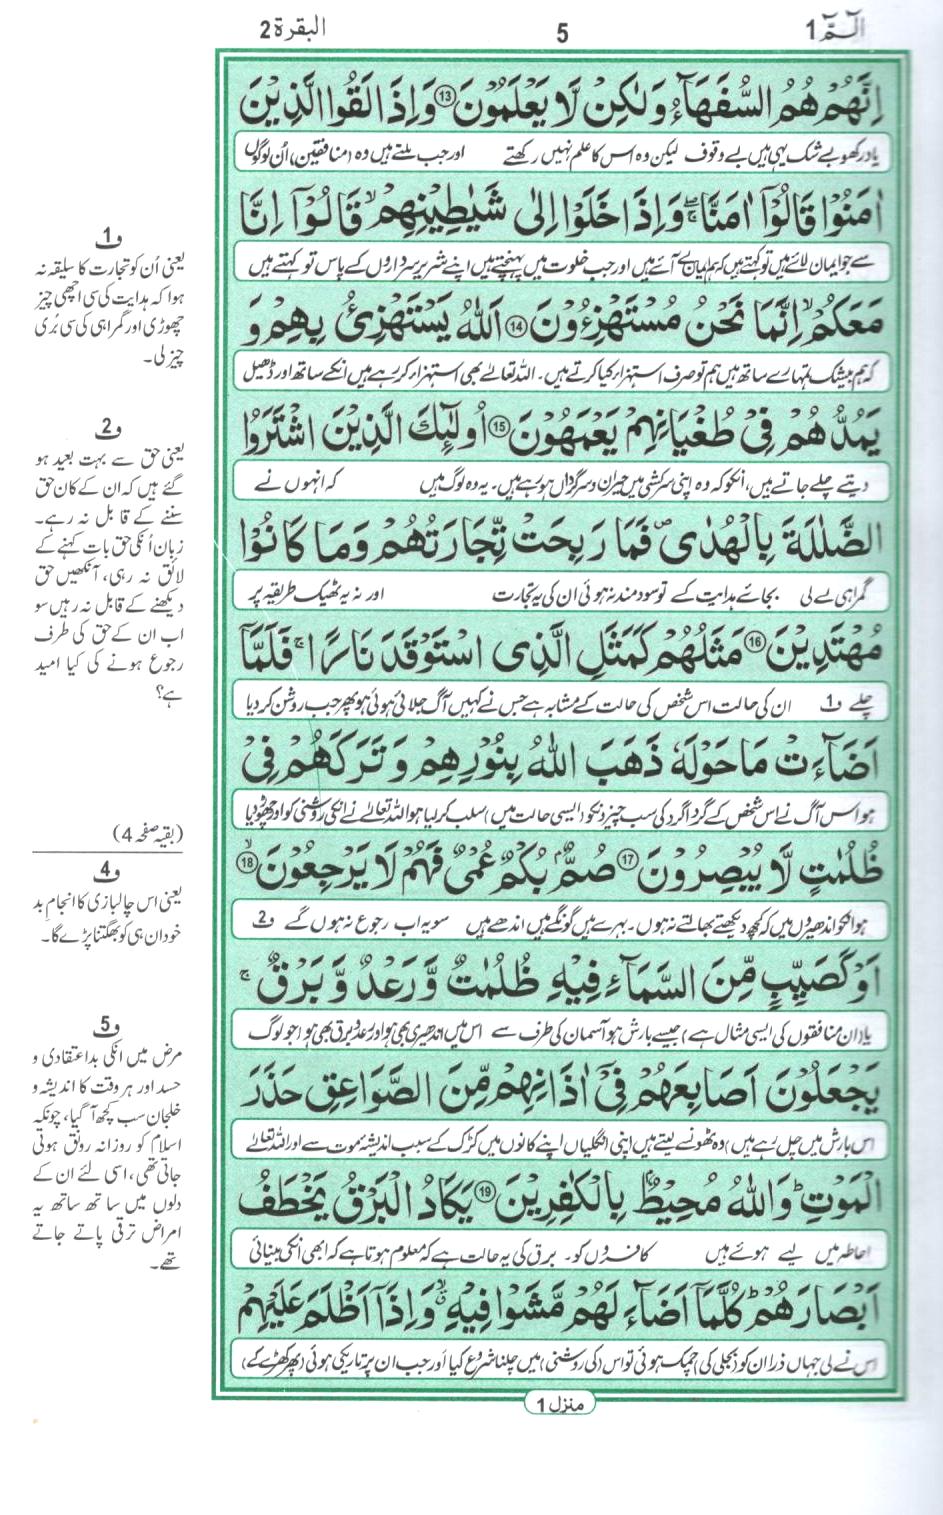 الٓـمّٓ 1
5
البقرة 2
اِنَّهُمْ هُمُ السُّفَهَآءُ وَلٰكِنْ لَّا يَعْلَمُوْنَ ۝13 وَاِذَا لَقُوا الَّذِيْنَ
یاد رکھو بے شک یہی ہیں بے وقوف لیکن وہ اس کا علم نہیں رکھتے اور جب ملتے ہیں وہ (منافقین) اُن لوگوں
اٰمَنُوْا قَالُوْٓا اٰمَنَّا ۖۚ وَاِذَا خَلَوْا اِلٰى شَيٰطِيْنِهِمْ ۙ قَالُوْٓا اِنَّا
سے جو ایمان لائے ہیں تو کہتے ہیں کہ ہم ایمان لے آئے ہیں اور جب خلوت میں پہنچتے ہیں اپنے شریر سرداروں کے پاس تو کہتے ہیں
مَعَكُمْ ۙ اِنَّمَا نَحْنُ مُسْتَهْزِءُوْنَ ۝14 اَللّٰهُ يَسْتَهْزِئُ بِهِمْ وَ
کہ ہم بیشک تمہارے ساتھ ہیں ہم تو صرف استہزاء کیا کرتے ہیں۔ اللہ تعالےٰ بھی استہزاء کر رہے ہیں انکے ساتھ اور ڈھیل
يَمُدُّهُمْ فِيْ طُغْيَانِهِمْ يَعْمَهُوْنَ ۝15 اُولٰٓئِكَ الَّذِيْنَ اشْتَرَوُا
دیتے چلے جاتے ہیں، انکو کہ وہ اپنی سرکشی میں حیران و سرگرداں ہو رہے ہیں۔ یہ وہ لوگ ہیں کہ انہوں نے
الضَّلٰلَةَ بِالْهُدٰى ۪ فَمَا رَبِحَتْ تِّجَارَتُهُمْ وَمَا كَانُوْا
گمراہی لے لی بجائے ہدایت کے تو سود مند نہ ہوئی ان کی یہ تجارت اور نہ یہ ٹھیک طریقہ پر
مُهْتَدِيْنَ ۝16 مَثَلُهُمْ كَمَثَلِ الَّذِى اسْتَوْقَدَ نَارًا ۚ فَلَمَّآ
چلے ف1 ان کی حالت اس شخص کی حالت کے مشابہ ہے جس نے کہیں آگ جلائی ہوئی ہو پھر جب روشن کر دیا
اَضَآءَتْ مَا حَوْلَهٗ ذَهَبَ اللّٰهُ بِنُوْرِهِمْ وَتَرَكَهُمْ فِيْ
ہو اس آگ نے اس شخص کے گردا گرد کی سب چیزونکو (ایسی حالت میں) سلب کر لیا ہو اللہ تعالےٰ نے انکی روشنی کو اور چھوڑ دیا
ظُلُمٰتٍ لَّا يُبْصِرُوْنَ ۝17 صُمٌّۢ بُكْمٌ عُمْىٌ فَهُمْ لَا يَرْجِعُوْنَ ۝18 ۙ
ہو انکو اندھیروں میں کہ کچھ دیکھتے بھالتے نہ ہوں۔ بہرے ہیں گونگے ہیں اندھے ہیں سو یہ اب رجوع نہ ہوں گے ف2
اَوْ كَصَيِّبٍ مِّنَ السَّمَآءِ فِيْهِ ظُلُمٰتٌ وَّرَعْدٌ وَّبَرْقٌ ۚ
یا ان منافقوں کی ایسی مثال ہے) جیسے بارش ہو آسمان کی طرف سے اس میں اندھیری بھی ہو اور رعد و برق بھی ہو (جو لوگ
يَجْعَلُوْنَ اَصَابِعَهُمْ فِيْٓ اٰذَانِهِمْ مِّنَ الصَّوَاعِقِ حَذَرَ
اس بارش میں چل رہے ہیں) وہ ٹھونسے لیتے ہیں اپنی انگلیاں اپنے کانوں میں کڑک کے سبب اندیشۂ موت سے اور اللہ تعالےٰ
الْمَوْتِ ؕ وَاللّٰهُ مُحِيْطٌۢ بِالْكٰفِرِيْنَ ۝19 يَكَادُ الْبَرْقُ يَخْطَفُ
احاطہ میں لیے ہوئے ہیں کافروں کو۔ برق کی یہ حالت ہے کہ معلوم ہوتا ہے کہ ابھی انکی بینائی
اَبْصَارَهُمْ ؕ كُلَّمَآ اَضَآءَ لَهُمْ مَّشَوْا فِيْهِ ۙ وَاِذَآ اَظْلَمَ عَلَيْهِمْ
اس نے لی جہاں ذرا ان کو (بجلی کی) چمک ہوئی تو اس (کی روشنی) میں چلنا شروع کیا اور جب ان پر تاریکی ہوئی (پھر کھڑے کے)
منزل 1
ف1
یعنی اُن کو تجارت کا سلیقہ نہ
ہوا کہ ہدایت کی سی اچھی چیز
چھوڑی اور گمراہی کی سی بُری
چیز لی۔
ف2
یعنی حق سے بہت بعید ہو
گئے ہیں کہ ان کے کان حق
سننے کے قابل نہ رہے۔
زبان اُنکی حق بات کہنے کے
لائق نہ رہی، آنکھیں حق
دیکھنے کے قابل نہ رہیں سو
اب ان کے حق کی طرف
رجوع ہونے کی کیا امید
ہے؟
(بقیہ صفحہ 4)
ف4
یعنی اس چالبازی کا انجام بد
خود ان ہی کو بھگتنا پڑے گا۔
ف5
مرض میں انکی بد اعتقادی و
حسد اور ہر وقت کا اندیشہ و
خلجان سب کچھ آ گیا، چونکہ
اسلام کو روزانہ رونق ہوتی
جاتی تھی، اسی لئے ان کے
دلوں میں ساتھ ساتھ یہ
امراض ترقی پاتے جاتے
تھے۔